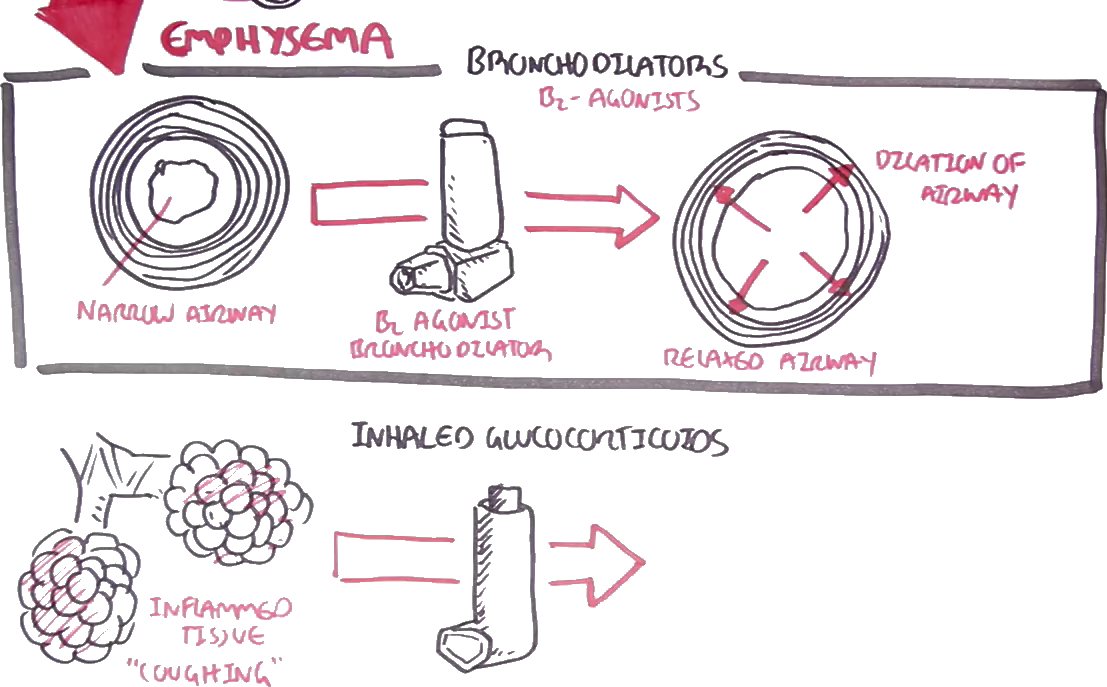 EMPHYSEMA
BRONCHODILATORS
B2-AGONISTS
NARROW AIRWAY
B2 AGONIST
BRONCHODILATOR
DILATION OF
AIRWAY
RELAXED AIRWAY
INHALED GLUCOCORTICOIDS
INFLAMMED
TISSUE
"COUGHING"